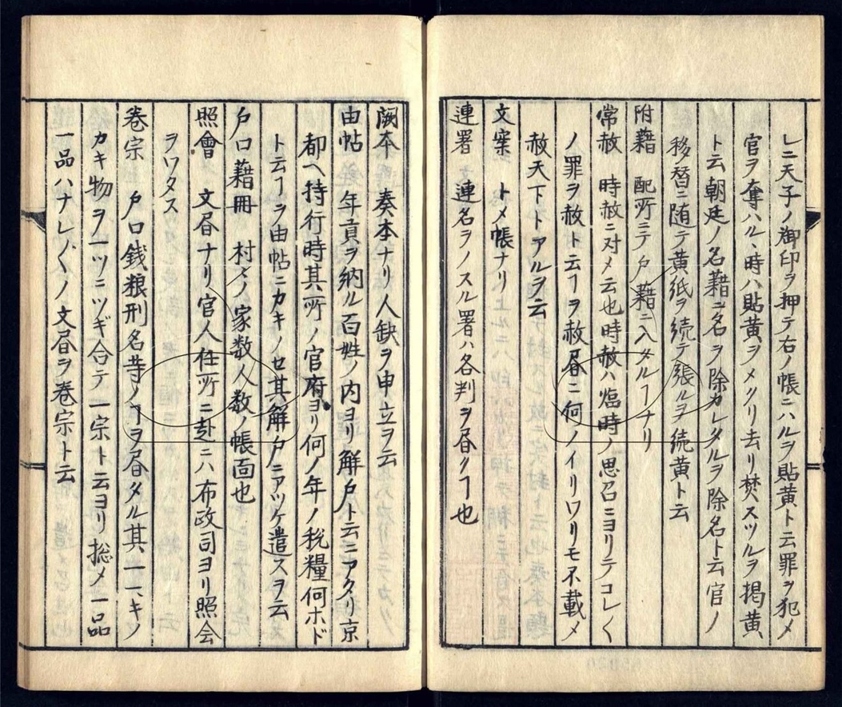 レニ天子ノ御印ヲ押テ右ノ帳ニハルヲ貼黄ト云罪ヲ犯メ
官ヲ奪ハルヽ時ハ貼黄ヲメクリ去リ焚スツルヲ掲黄
ト云朝廷ノ名藉ニ名ヲ除カレタルヲ除名ト云官ノ
移替ニ随テ黄紙ヲ続テ張ルヲ続黄ト云
附藉 配所ニテ戸藉ニ入タルヿナリ
常赦 時赦ニ対メ云也時赦ハ臨時ノ思召ニヨリテコレ〱
ノ罪ヲ赦ト云ヿヲ赦書ニ何ノイリワリモ不載メ
赦天下トアルヲ云
文案 トメ帳ナリ
連署 連名ヲノスル署ハ各判ヲ書クヿ也
闕本 奏本ナリ人缺ヲ申立ヲ云
由帖 年貢ヲ納ル百姓ノ内ヨリ解戸ト云ニアタリ京
都ヘ持行時其所ノ官府ヨリ何ノ年ノ税糧何ホド
ト云ヿヲ由帖ニカキノセ其解戸ニアツケ遣スヲ云
戸口藉冊 村々ノ家数人数ノ帳面也
照會 文書ナリ官人任所ニ赴ニハ布政司ヨリ照会
ヲワタス
卷宗 戸口銭粮刑名等ノヿヲ書タル其一一、キノ
カキ物ヲ一ツニツギ合テ一宗ト云ヨリ捴メ一品
一品ハナレ〲ノ文書ヲ卷宗ト云